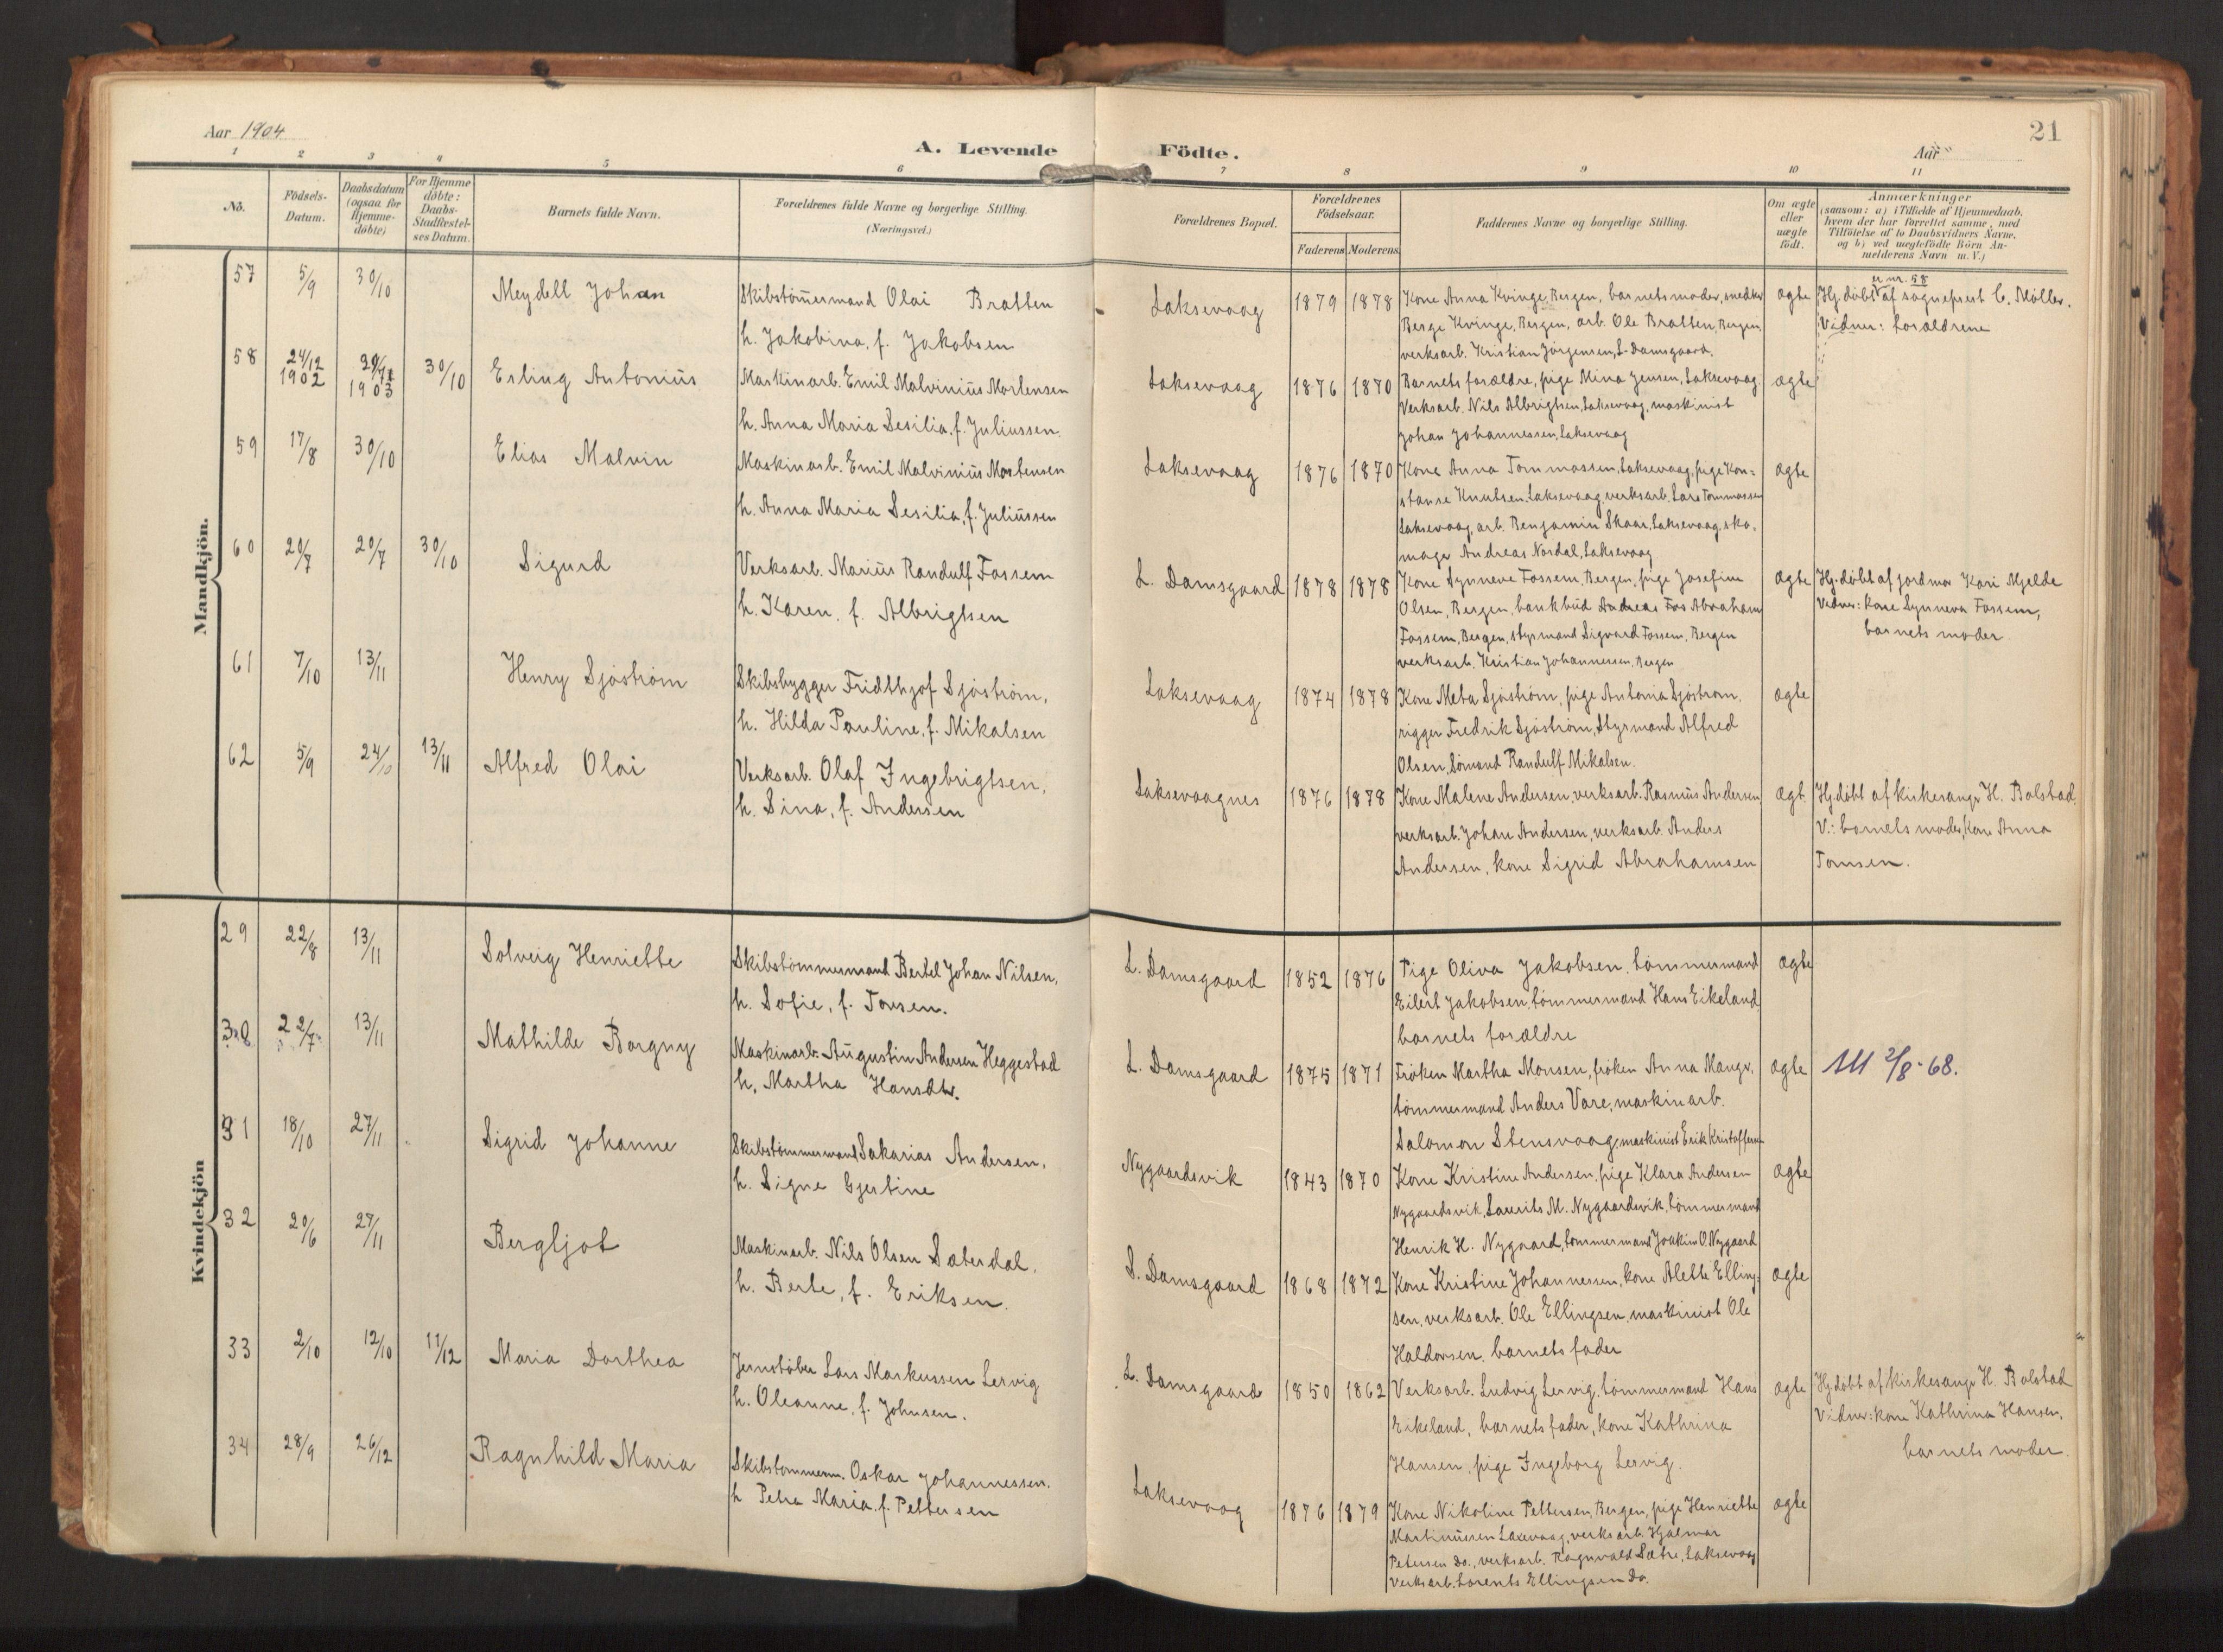 Aar 1904
A. Levende Födte.
Aar
21
1 2 3 4 5 6 7 8 9 10 11
No.
Födsels-Datum.
Daabsdatum (ogsaa for Hjemme-döbte)
For Hjemme döbte: Daabs-Stadfæstel-ses Datum.
Barnets fulde Navn.
Forældrenes fulde Navne og borgerlige Stilling.
(Næringsvei.)
Forældrenes Bopæl.
Forældrenes Födselsaar.
Faderens Moderens
Faddernes Navne og borgerlige Stilling.
Om ægte eller uægte födt.
Anmærkninger
(saasom: a) i Tilfælde af Hjemmedaab,
hvem der har forrettet samme, med
Tilföielse af to Daabsvidners Navne,
og b) ved uægtefödte Börn An-
melderens Navn m. V.)
Mandkjön.
57 5/9 30/10 Meydell Johan
Skibstömmermand Olai Bratten
h. Jakobina, f. Jakobsen
Laksevaag 1879 1878
Kone Anna Kvinge, Bergen, barnets moder, snedker
Berge Kvinge, Bergen, arb. Ole Bratten, Bergen,
verksarb. Kristian Jörgensen, L. Damsgaard.
ægte
er nr. 58
Hj. döbt af sogneprest C. Möller.
Vidner: Forældrene
58 24/12 1902 1903 30/10 Erling Antonius
Maskinarb. Emil Malvinius Mortensen
h. Anna Maria Sesilia, f. Juliussen.
Laksevaag 1876 1870
Barnets forældre, pige Mina Jensen, Laksevaag.
Verksarb. Nils Albrigtsen, Laksevaag, maskinist
Johan Johannessen, Laksevaag
ægte
59 17/8 30/10 Elias Malvin
Maskinarb. Emil Malvinius Mortensen
h. Anna Maria Sesilia, f. Juliussen
Laksevaag 1876 1870
Kone Anna Tommassen, Laksevaag, pige Kon=
stanse Knutsen, Laksevaag, verksarb. Lars Tommassen
Laksevaag, arb. Benjamin Skaar, Laksevaag, sko-
mager Andreas Nordal, Laksevaag
ægte
60 20/7 20/7 30/10 Sigurd
Verksarb. Marius Randulf Fossem
h. Karen, f. Albrigtsen
L. Damsgaard 1878 1878
Kone Synneve Fossem, Bergen, pige Josefine
Olsen, Bergen, bankbud Andreas Fos Abraham
Fossem, Bergen, styrmand Sigvard Fossem, Bergen
verksarb. Kristian Johannessen, Bergen
ægte
Hj. döbt af jordmor Kari Mjelde
Vidner: kone Synneva Fossem,
barnets moder
61 7/10 13/11 Henry Sjöström
Skibsbygger Fridthjof Sjöström,
h. Hilda Pauline, f. Mikalsen
Laksevaag 1874 1878
Kone Meta Sjöström, pige Antonia Sjöström,
rigger Fredrik Sjöström, styrmand Alfred
Olsen, sömand Randulf Mikalsen.
ægte
62 5/9 24/10 13/11 Alfred Olai
Verksarb. Olaf Ingebrigtsen,
h. Sina, f. Andersen
Laksevaagnes 1876 1878
Kone Malene Andersen, verksarb. Rasmus Andersen
verksarb. Johan Andersen, verksarb. Anders
Andersen, kone Sigrid Abrahamsen
ægt.
Hj. döbt af kirkesanger H. Bolstad.
V.: barnets moder, kone Anna
Tomsen.
Kvindekjön
29 22/8 13/11 Solveig Henriette
Skibstömmermand Bertel Johan Nilsen,
h. Sofie, f. Tonsen.
L. Damsgaard 1852 1876
Pige Oliva Jakobsen, tömmermand
Eilert Jakobsen, tömmermand Hans Eikeland
barnets forældre
ægte
30 22/7 13/11 Mathilde Borgny
Maskinarb. Augustin Andersen Heggestad
h. Martha Hansdtr.
L. Damsgaard 1875 1871
Fröken Martha Monsen, fröken Anna Manger,
tömmermand Anders Vare, maskinarb.
Salomon Stensvaag, maskinist Erik Kristoffersen
ægte
2/8-68.
31 18/10 27/11 Sigrid Johanne
Skibstömmermand Sakarias Andersen,
h. Signe Gjertine
Nygaardsvik 1843 1870
Kone Kristine Andersen, pige Klara Andersen
Nygaardsvik, Laurits M. Nygaardsvik, tömmermand
Henrik H. Nygaard, tömmermand Joakim O. Nygaard
ægte
32 20/6 27/11 Bergljot
Maskinarb. Nils Olsen Saterdal,
h. Berte, f. Eriksen.
S. Damsgaard 1868 1872
Kone Kristine Johannessen, kone Alette Elling-
sen, verksarb. Ole Ellingsen, maskinist Ole
Haldorsen, barnets fader
ægte
33 2/10 12/10 11/12 Maria Dorthea
Jernstöber Lars Markussen Lervig
h. Oleanne, f. Johnsen.
L. Damsgaard 1850 1862
Verksarb. Ludvig Lervig, tömmermand Hans
Eikeland, barnets fader, kone Kathrina
Hansen, pige Ingeborg Lervig.
ægte
Hj. döbt af kirkesanger H. Bolstad
Vidner: kone Kathrina Hansen,
barnets moder.
34 28/9 26/12 Ragnhild Maria
Skibstömmerm. Oskar Johannessen.
h Petra Maria, f. Pettersen
Laksevaag 1876 1879
Kone Nikoline Pettersen, Bergen, pige Henriette
Martinussen Laxevaag, verksarb. Hjalmar
Petersen Do., verksarb. Ragnvald Sætre, Laksevaag
Verksarb. Lorents Ellingsen Do.
ægte